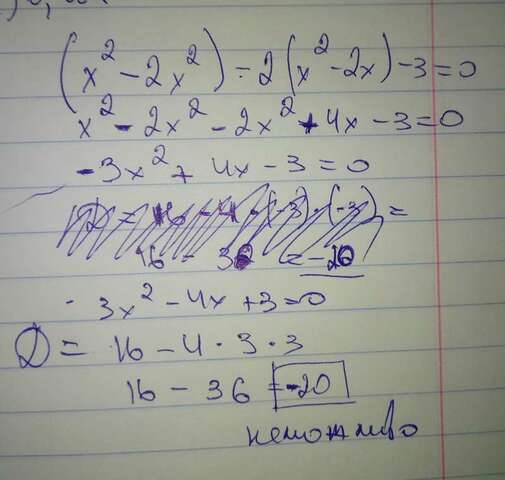 (x² - 2x²) - 2(x² - 2x) - 3 = 0
x² - 2x² - 2x² + 4x - 3 = 0
- 3x² + 4x - 3 = 0
D = 16 - 4 · (-3) · (-3) =
16 - 36 = -20
3x² - 4x + 3 = 0
D = 16 - 4 · 3 · 3
16 - 36 = -20
неможливо